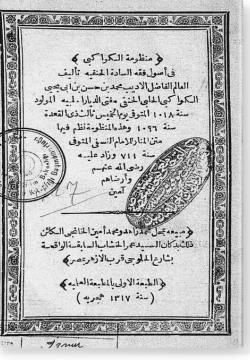 ﴿ منظومة الكواكبى ﴾
فى أصول فقه السادة الحنفيه تأليف
العالم الفاضل الاديب محمد بن حسن بن أبى يحيى
الكواكبى الحلبى الحنفى مفتى الديار الحلبيه المولود
سنة ١٠١٨ المتوفى يوم الخميس ثالث ذى القعدة
سنة ١٠٩٦ وهذه المنظومة نظم فيها
متن المنار للامام النسفى المتوفى
سنة ٧١١ وزاد عليه
رضى الله عنهم
وأرضاهم
آمين
17
﴿ مبيعه بمحل محمد أمين الخانجى الكائن
السيد عمر الخشاب السابقة الواقعة
بشارع الحلوجى قرب الازهر بمصر ﴾
﴿ الطبعة الاولى بالمطبعة العلميه ﴾
( سنة ١٣١٧ هجريه )